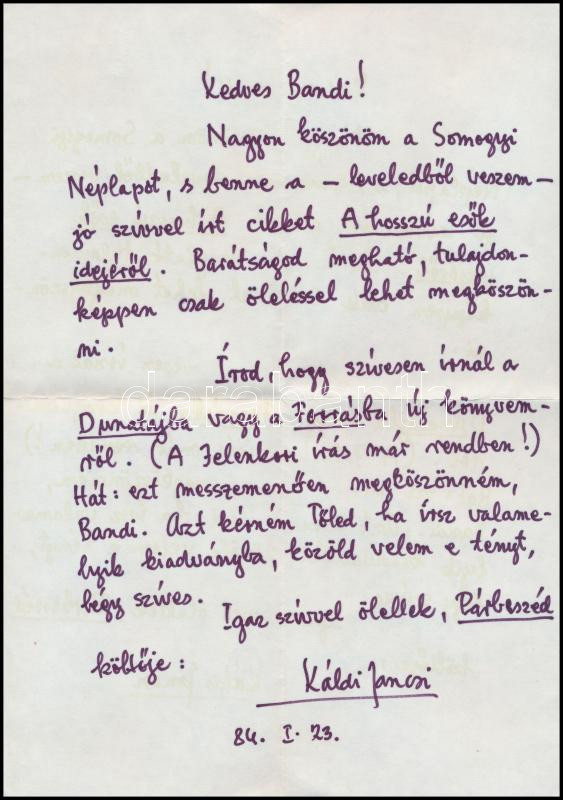 Kedves Bandi!
Nagyon köszönöm a Somogyi
Néplapot, s benne a – leveledből veszem –
jó szívvel írt cikket A hosszú esők
idejéről. Barátságod megható, tulajdon-
képpen csak öleléssel lehet megköszön-
ni.
Írod hogy szívesen írnál a
Dunatájba vagy a Forrásba új könyvem-
ről. (A Jelenkori írás már rendben!)
Hát: ezt messzemenően megköszönném,
Bandi. Azt kérném Tőled, ha írsz valame-
lyik kiadványba, közöld velem e tényt,
légy szíves.
Igaz szívvel ölellek, Párbeszéd
költője:
Káldi Jancsi
84. I. 23.
darabanth